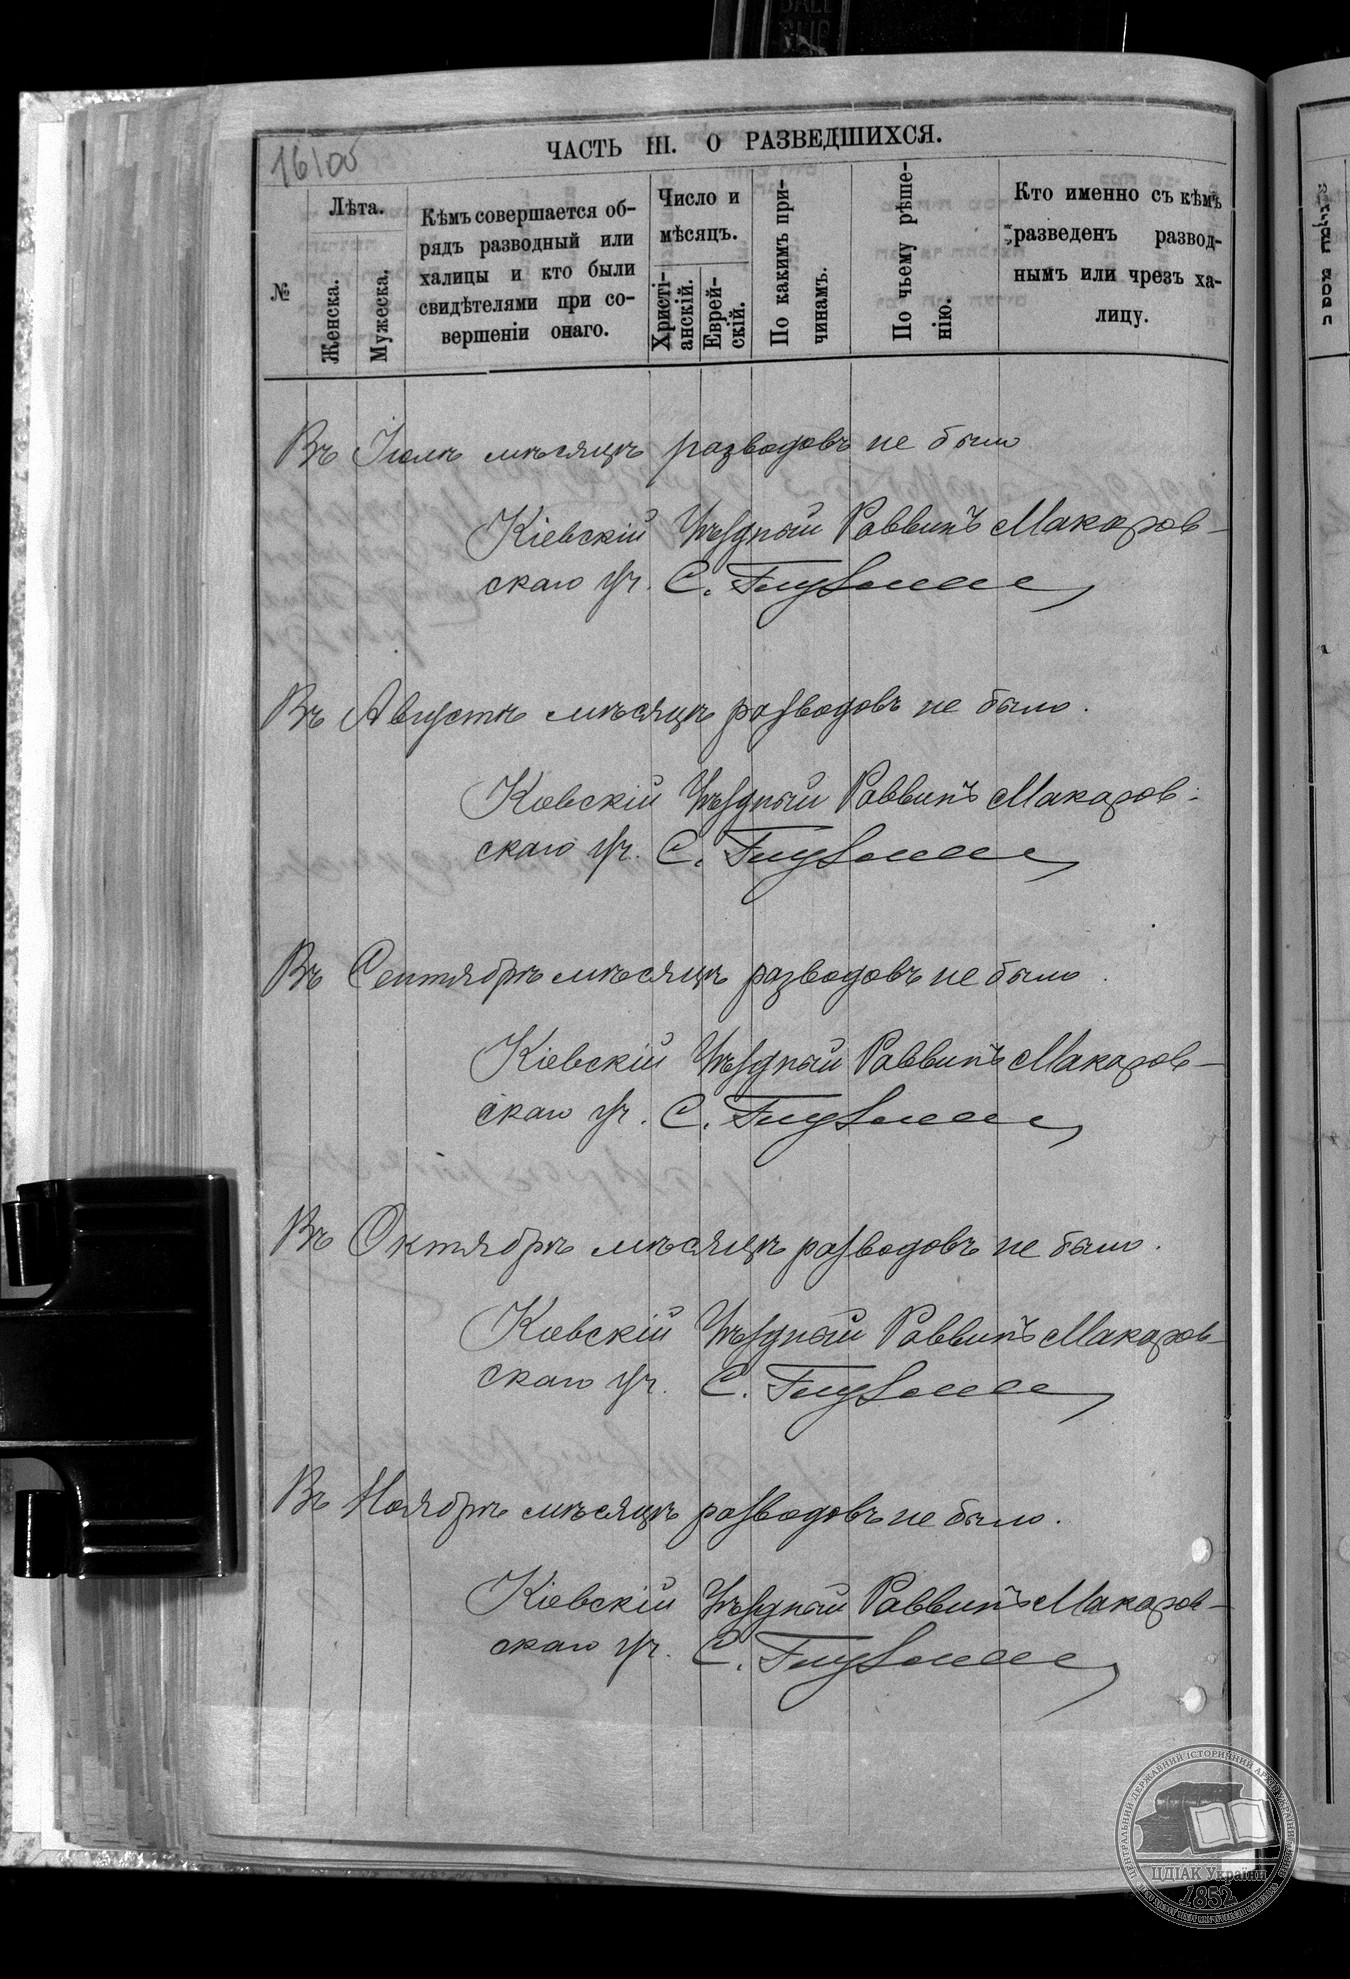 16/00
ЧАСТЬ III. О РАЗВЕДШИХСЯ.
№
Лѣта.
Женска.
Мужеска.
Кѣмъ совершается об-
рядъ разводный или
халицы и кто были
свидѣтелями при со-
вершеніи онаго.
Число и
мѣсяцъ.
Христі-
анскій.
Еврей-
скій.
По какимъ при-
чинамъ.
По чьему рѣше-
нію.
Кто именно съ кѣмъ
разведенъ развод-
нымъ или чрезъ ха-
лицу.
Въ Іюлѣ мѣсяцѣ разводовъ не было
Кіевскій Уѣздный Раввинъ Макаров-
скаго уч. С.
Въ Августѣ мѣсяцѣ разводовъ не было.
Кіевскій Уѣздный Раввинъ Макаров-
скаго уч. С.
Въ Сентябрѣ мѣсяцѣ разводовъ не было.
Кіевскій Уѣздный Раввинъ Макаров-
скаго уч. С.
Въ Октябрѣ мѣсяцѣ разводовъ не было.
Кіевскій Уѣздный Раввинъ Макаров-
скаго уч. С.
Въ Ноябрѣ мѣсяцѣ разводовъ не было.
Кіевскій Уѣздный Раввинъ Макаров-
скаго уч. С.
ЦДІАК України
1852